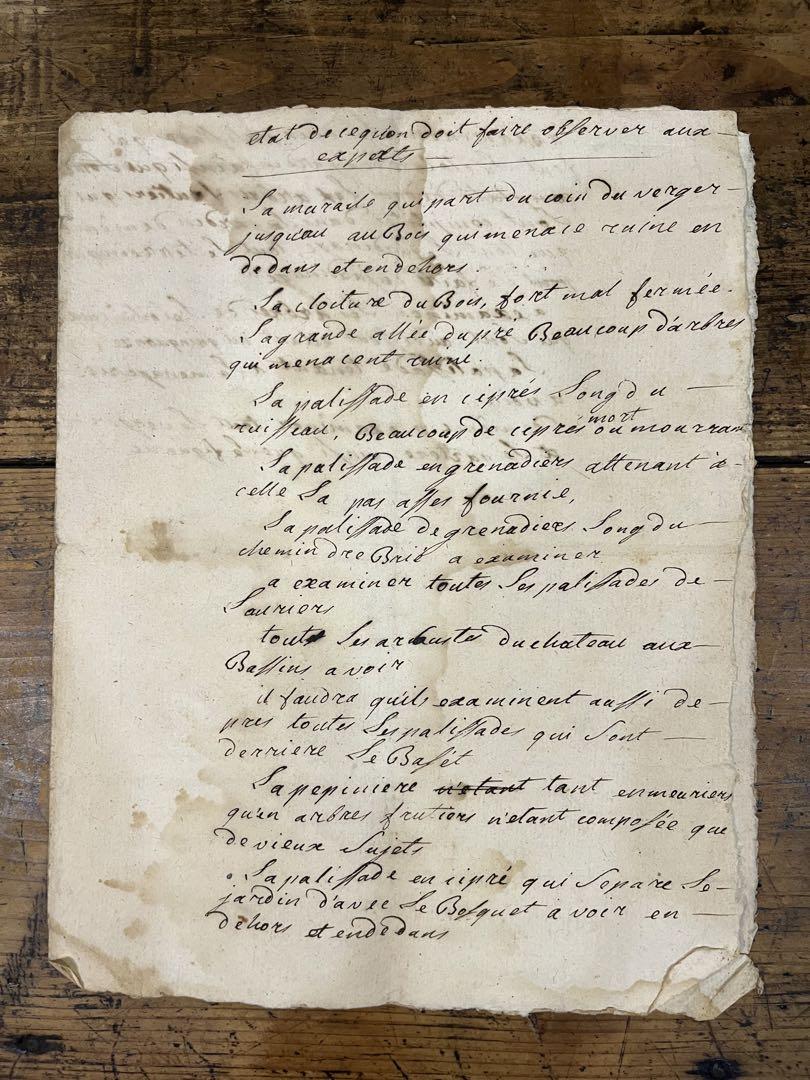 etat de cequon doit faire observer aux
experts
La muraile qui part du coin du verger
jusqu'au au Bois qui menace ruine en
dedans et en dehors.
La cloiture du Bois, fort mal fermée.
La grande allée du pré Beaucoup d'arbres
qui menacent ruine.
La palissade en ciprés Long du
ruisseau, Beaucoup de ciprés mort ou mourran
La palissade en grenadiers attenant a
celle La pas asses fournie,
La palissade de grenadiers Long du
chemin a examiner
a examiner toutes Les palissades de
Lauriers
toute Les arbustes du chateau aux
Bassins a voir
il faudra quils examinent aussi de
pres toutes Les palissades qui sont
derriere Le
La pepiniere n'etant tant en meuriers
qu'en arbres frutiers n'etant composée que
de vieux Sujets
La palissade en cipré qui Separe Le
jardin d'avec Le Bosquet a voir en
dehors et en dedans